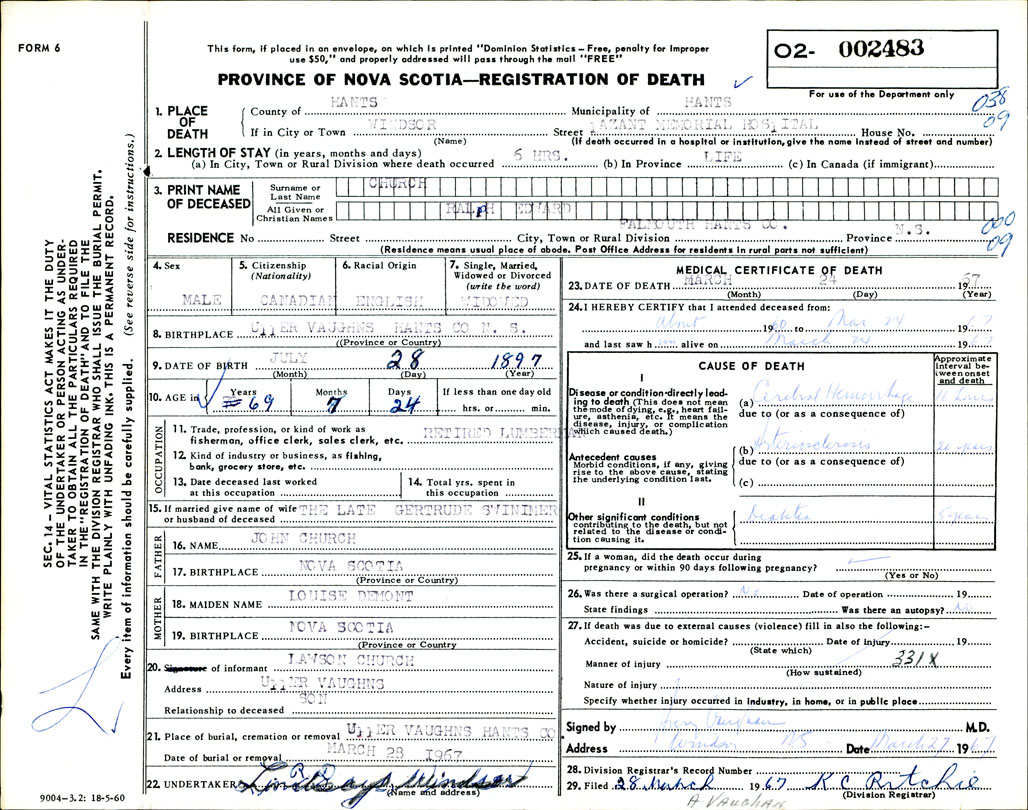 FORM 6
This form, if placed in an envelope, on which is printed "Dominion Statistics – Free, penalty for improper
use $50," and properly addressed will pass through the mail "FREE"
PROVINCE OF NOVA SCOTIA—REGISTRATION OF DEATH
02- 002483
For use of the Department only
038
09
SEC. 14 – VITAL STATISTICS ACT MAKES IT THE DUTY
OF THE UNDERTAKER OR PERSON ACTING AS UNDER-
TAKER TO OBTAIN ALL THE PARTICULARS REQUIRED
IN THE "REGISTRATION OF DEATH" AND TO FILE THE
SAME WITH THE DIVISION REGISTRAR WHO SHALL ISSUE THE BURIAL PERMIT.
WRITE PLAINLY WITH UNFADING INK. THIS IS A PERMANENT RECORD.
Every item of information should be carefully supplied. (See reverse side for instructions.)
1. PLACE OF DEATH
County of HANTS Municipality of HANTS
If in City or Town WINDSOR Street AZANT MEMORIAL HOSPITAL House No.
(Name) (If death occurred in a hospital or institution, give the name instead of street and number)
2. LENGTH OF STAY (in years, months and days)
(a) In City, Town or Rural Division where death occurred 6 HRS. (b) In Province LIFE (c) In Canada (if immigrant)
3. PRINT NAME OF DECEASED
Surname or Last Name CHURCH
All Given or Christian Names RALPH EDWARD
RESIDENCE No Street City, Town or Rural Division FALMOUTH HANTS CO. Province N.S.
000
09
(Residence means usual place of abode. Post Office Address for residents in rural parts not sufficient)
4. Sex MALE
5. Citizenship (Nationality) CANADIAN
6. Racial Origin ENGLISH
7. Single, Married, Widowed or Divorced (write the word) WIDOWED
8. BIRTHPLACE UPPER VAUGHNS HANTS CO N. S.
(Province or Country)
9. DATE OF BIRTH JULY 28 1897
(Month) (Day) (Year)
10. AGE in Years 69 Months 7 Days 24 If less than one day old
hrs. or min.
OCCUPATION
11. Trade, profession, or kind of work as
fisherman, office clerk, sales clerk, etc. RETIRED LUMBERMAN
12. Kind of industry or business, as fishing,
bank, grocery store, etc.
13. Date deceased last worked
at this occupation
14. Total yrs. spent in
this occupation
15. If married give name of wife or husband of deceased THE LATE GERTRUDE SWINIMER
FATHER
16. NAME JOHN CHURCH
17. BIRTHPLACE NOVA SCOTIA
(Province or Country)
MOTHER
18. MAIDEN NAME LOUISE DEMONT
19. BIRTHPLACE NOVA SCOTIA
(Province or Country
20. Signature of informant LAWSON CHURCH
Address UPPER VAUGHNS
Relationship to deceased SON
21. Place of burial, cremation or removal UPPER VAUGHNS HANTS CO
Date of burial or removal MARCH 28 1967
22. UNDERTAKER Windsor
(Name and address)
9004–3.2: 18-5-60
MEDICAL CERTIFICATE OF DEATH
23. DATE OF DEATH MARCH 24 1967
(Month) (Day) (Year)
24. I HEREBY CERTIFY that I attended deceased from:
about 1960 to Mar 24 1967
and last saw him alive on March 24 1967
CAUSE OF DEATH
Approximate interval between onset and death
I
Disease or condition directly lead-
ing to death (This does not mean
the mode of dying, e.g., heart fail-
ure, asthenia, etc. It means the
disease, injury, or complication
which caused death.)
(a) Cerebral Hemorrhage 11 hours
due to (or as a consequence of)
Antecedent causes
Morbid conditions, if any, giving
rise to the above cause, stating
the underlying condition last.
(b) Arteriosclerosis 20 years
due to (or as a consequence of)
(c)
II
Other significant conditions
contributing to the death, but not
related to the disease or condi-
tion causing it.
Diabetes 5 years
25. If a woman, did the death occur during
pregnancy or within 90 days following pregnancy?
(Yes or No)
26. Was there a surgical operation? No Date of operation 19
State findings Was there an autopsy? No
27. If death was due to external causes (violence) fill in also the following:–
Accident, suicide or homicide? Date of injury 19
(State which)
Manner of injury 331X
(How sustained)
Nature of injury
Specify whether injury occurred in industry, in home, or in public place
Signed by Vaughan M.D.
Address Windsor NS Date March 27 1967
28. Division Registrar's Record Number
29. Filed 28 March 1967 K C Ritchie
(Division Registrar)
A VAUGHAN